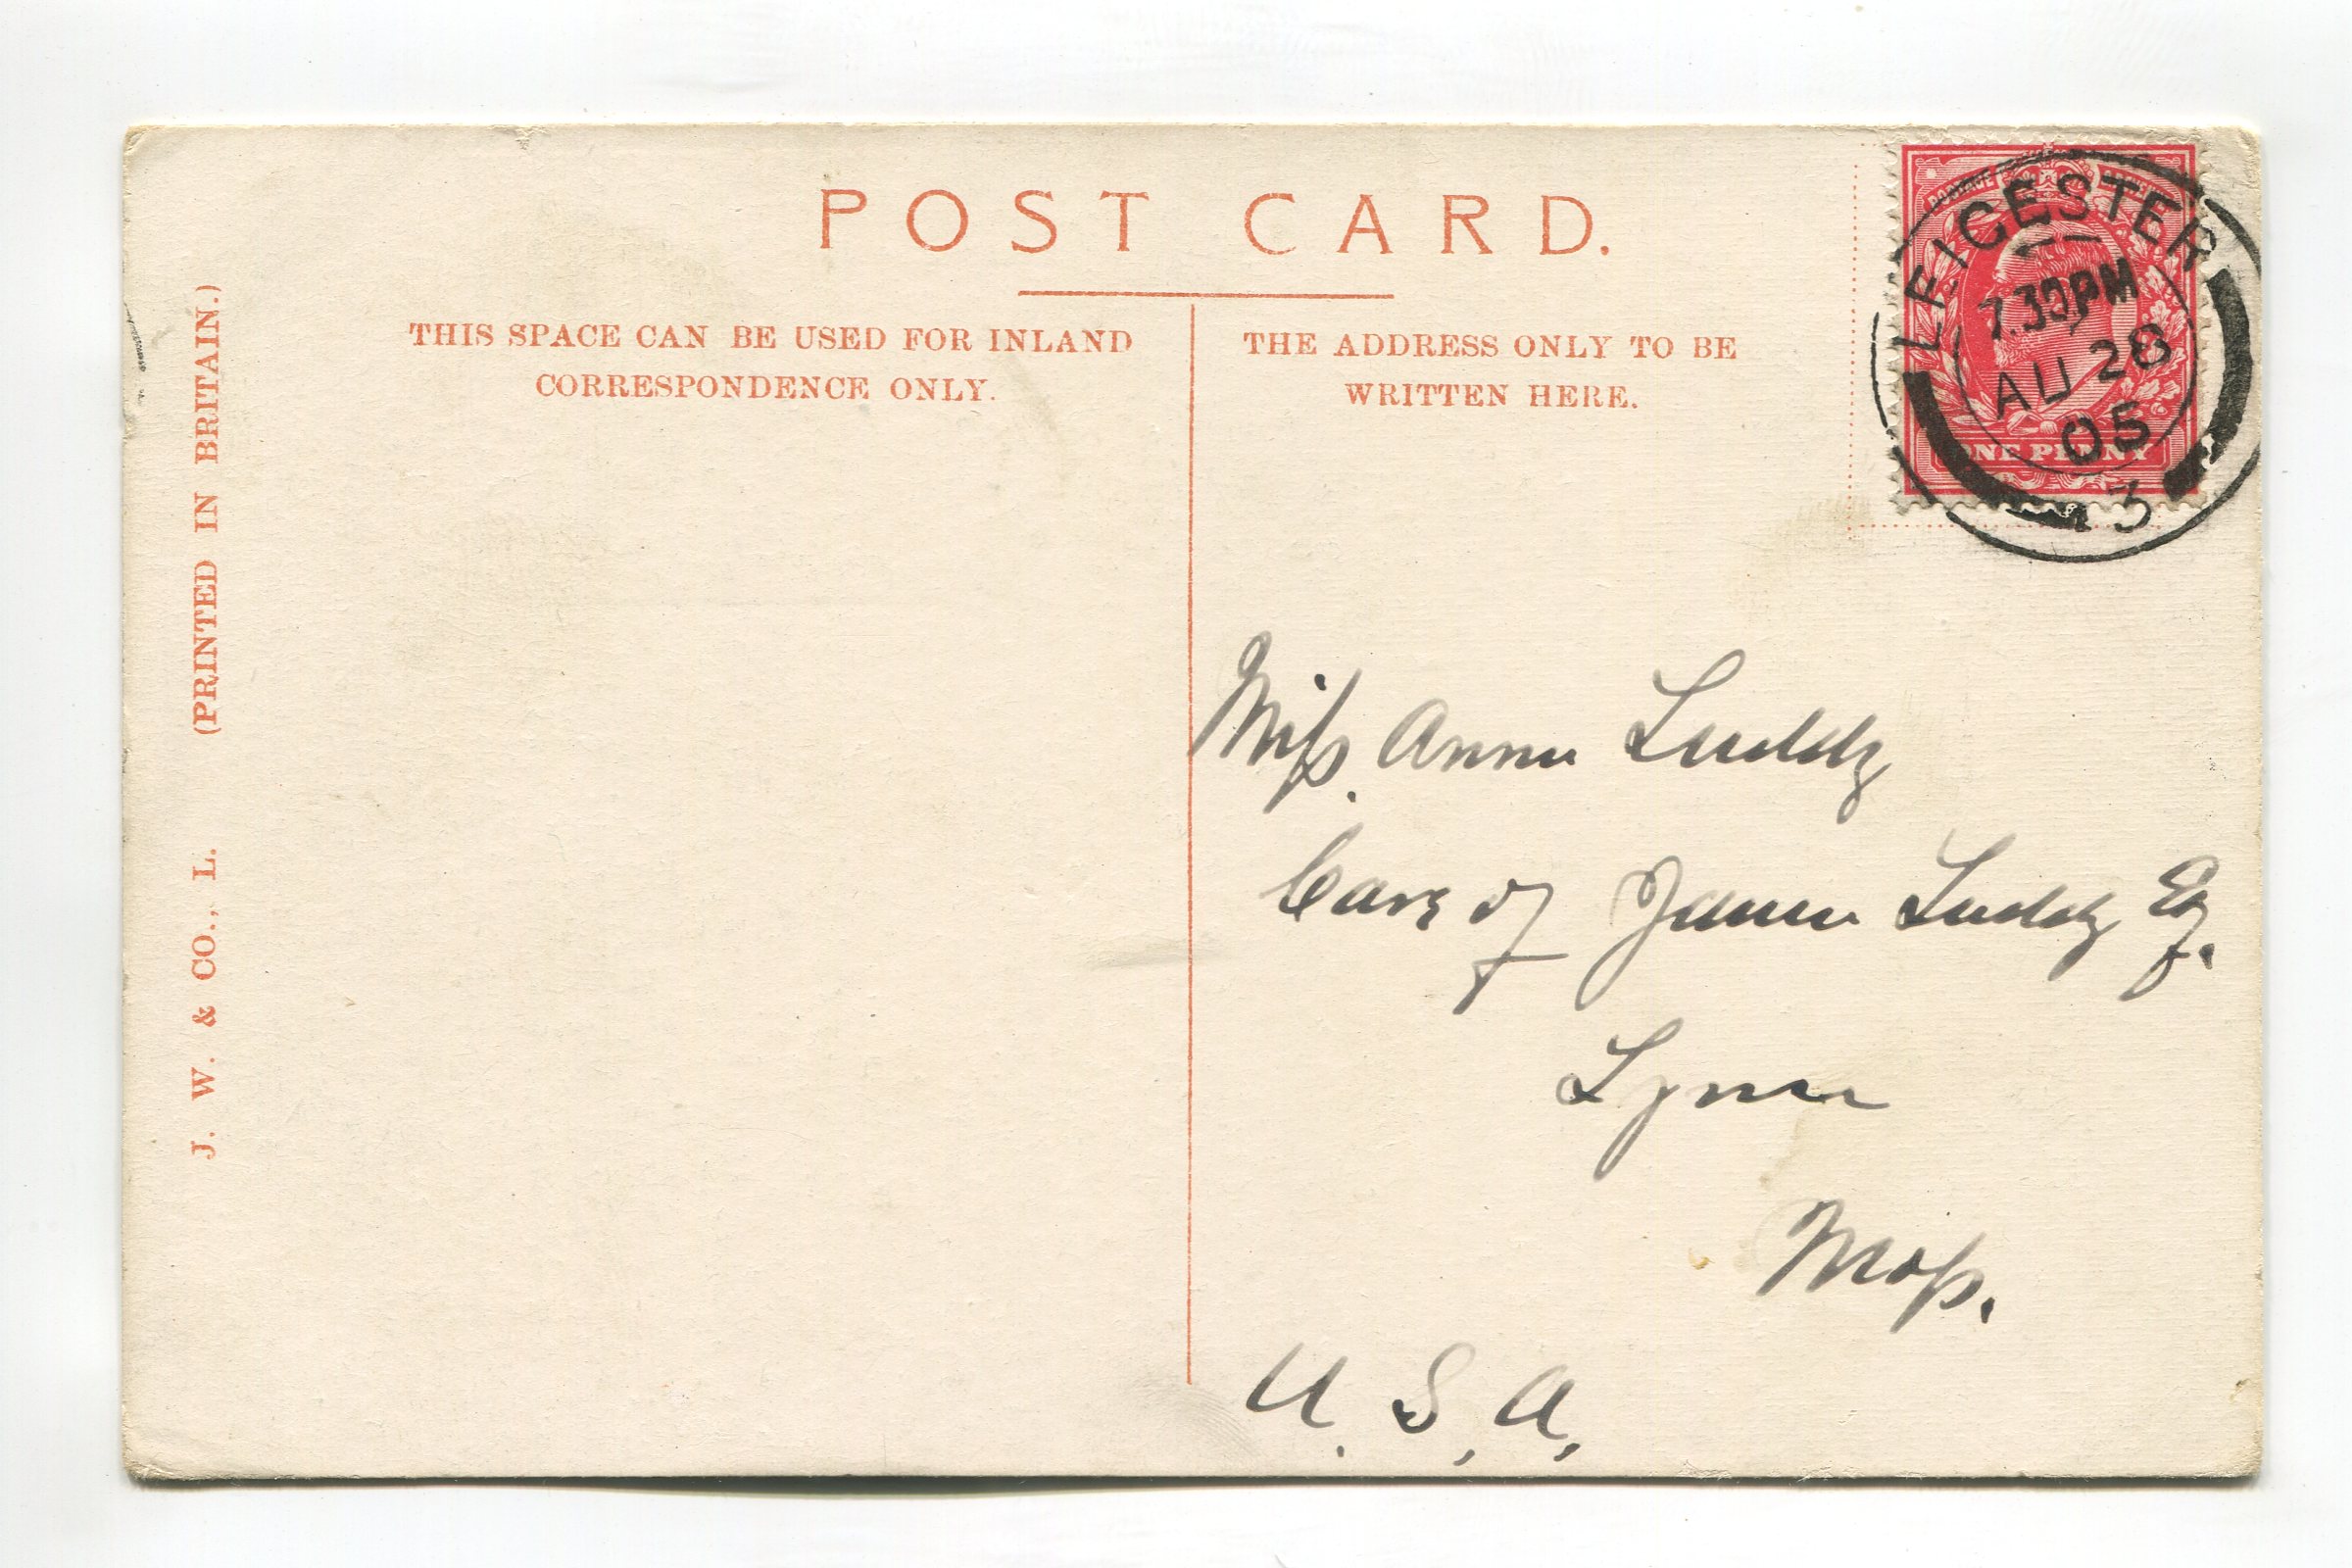 POST CARD.
THIS SPACE CAN BE USED FOR INLAND
CORRESPONDENCE ONLY.
THE ADDRESS ONLY TO BE
WRITTEN HERE.
J. W. & CO., L. (PRINTED IN BRITAIN.)
LEICESTER
7.30PM
AU 28
05
ONE PENNY
Miss. Annie Luddy
Care of James Luddy Esq.
Lynn
Mass.
U. S. A.